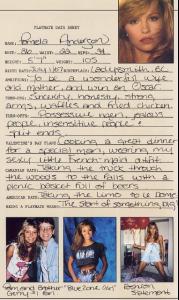 PLAYMATE DATA SHEET
NAME: Pamela Anderson
BUST: WAIST: HIPS:
HEIGHT: 5'7" WEIGHT: 105
BIRTH DATE: BIRTHPLACE: Ladysmith, BC
AMBITIONS: To be a wonderful wife
and mother and win an Oscar
TURN-ONS: Sincerity, honesty, strong
arms, waffles and fried chicken.
TURN-OFFS: Possessive men, jealous
people, insensitive people +
split ends.
VALENTINE'S DAY FLASH: Cooking a great dinner
for a special man, wearing my
sexy little French maid outfit.
CANADIAN DATE: Taking the truck through
the woods to the falls with a
picnic basket full of beers
AMERICAN DATE: Taking the limo to Le Dome.
BEING A PLAYMATE MEANS: The start of something big
Me and brother "Blue Zone Girl" Fashion
Gerry in Pari Statement